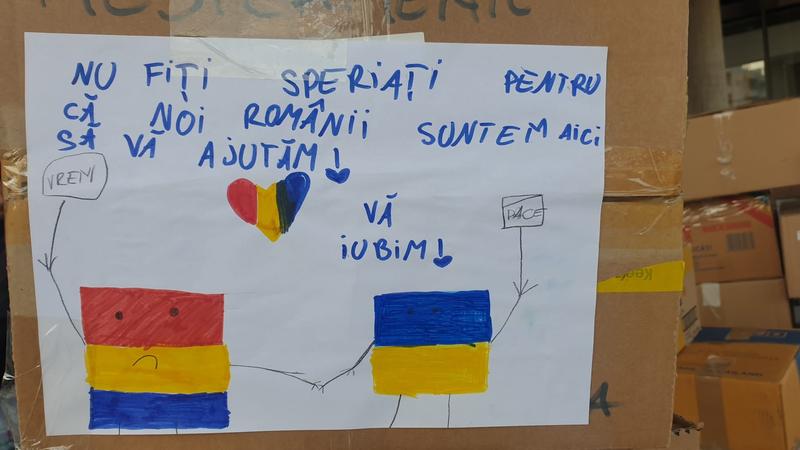 NU FIȚI SPERIAȚI PENTRU
CĂ NOI ROMÂNII SUNTEM AICI
SĂ VĂ AJUTĂM!
VREM
PACE
VĂ
IUBIM!